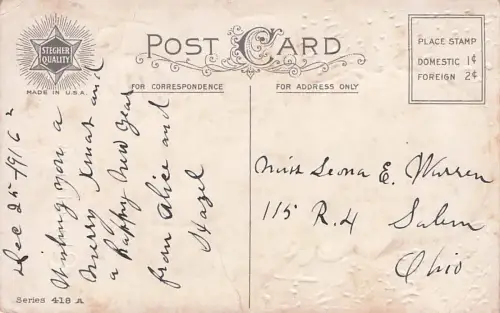 STEGHER
QUALITY
MADE IN U.S.A.
POST CARD
PLACE STAMP
DOMESTIC 1¢
FOREIGN 2¢
FOR CORRESPONDENCE
FOR ADDRESS ONLY
Dec 25-1916
Wishing you a
Merry Xmas and
a happy New Year
from Alice and
Hazel
Miss Leona E. Warren
115 R.4 Salem
Ohio
Series 418 A